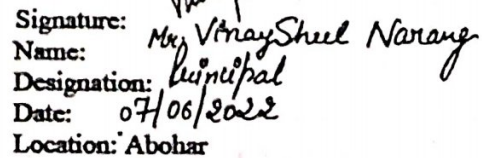 Signature:
Name: Mr. Vinay Sheel Narang
Designation: Principal
Date: 07/06/2022
Location: Abohar